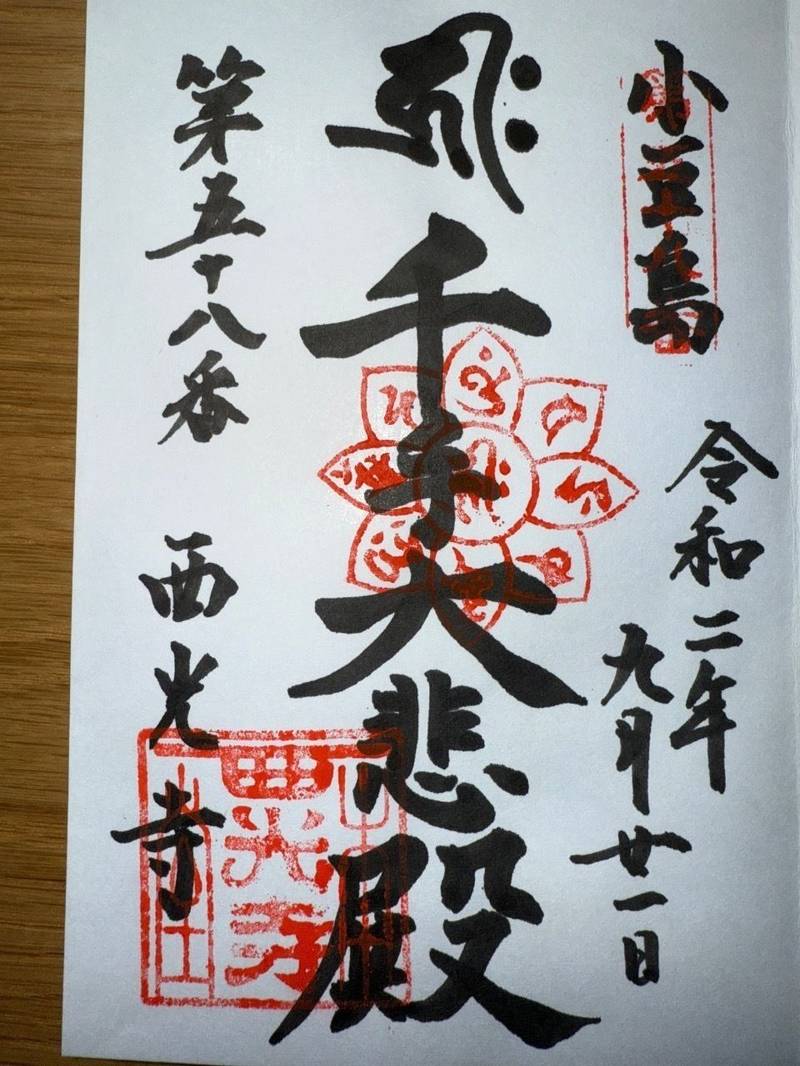 小豆島
令和二年
九月廿一日
𑖮𑖿𑖨𑖱𑖾
千手大悲殿
第五十八番
西光寺
西光寺